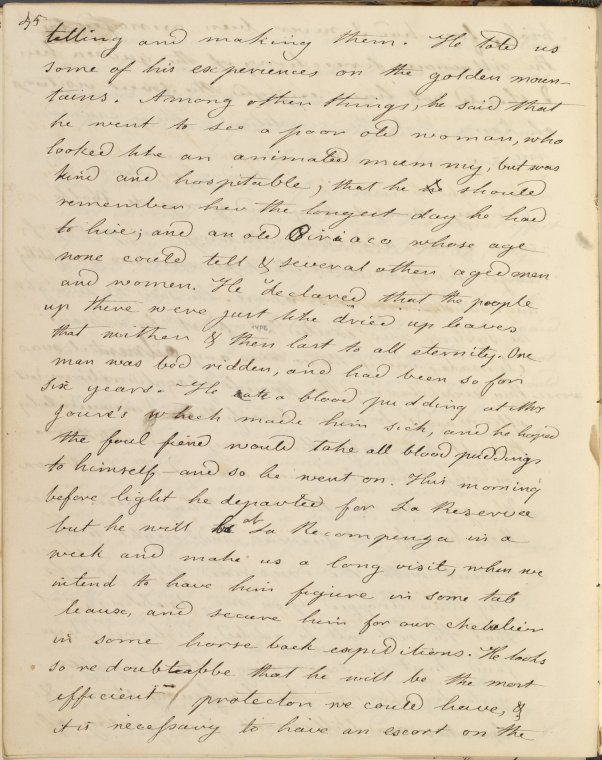 45
telling and making them. He told us
some of his experiences on the golden moun-
tains. Among other things, he said that
he went to see a poor old woman, who
looked like an animated mummy, but was
kind and hospitable; that he should
remember her the longest day he had
to live; and an old Ciriaco whose age
none could tell & several other aged men
and women. He declared that the people
up there were just like "dried up leaves
that wither & then last to all eternity. One
man was bed ridden, and had been so for
six years. He ate a blood pudding at Mrs
Goure's which made him sick, and he hoped
the foul fiend would take all blood puddings
to himself—and so he went on. This morning
before light he departed for La Reserva
but he will be at La Recompenga in a
week and make us a long visit, when we
intend to have him figure in some tab
leaux, and secure him for our chevalier
in some horse back expiditions. He looks
so redoubtable that he will be the most
efficient protector we could have, &
it is necessary to have an escort on the